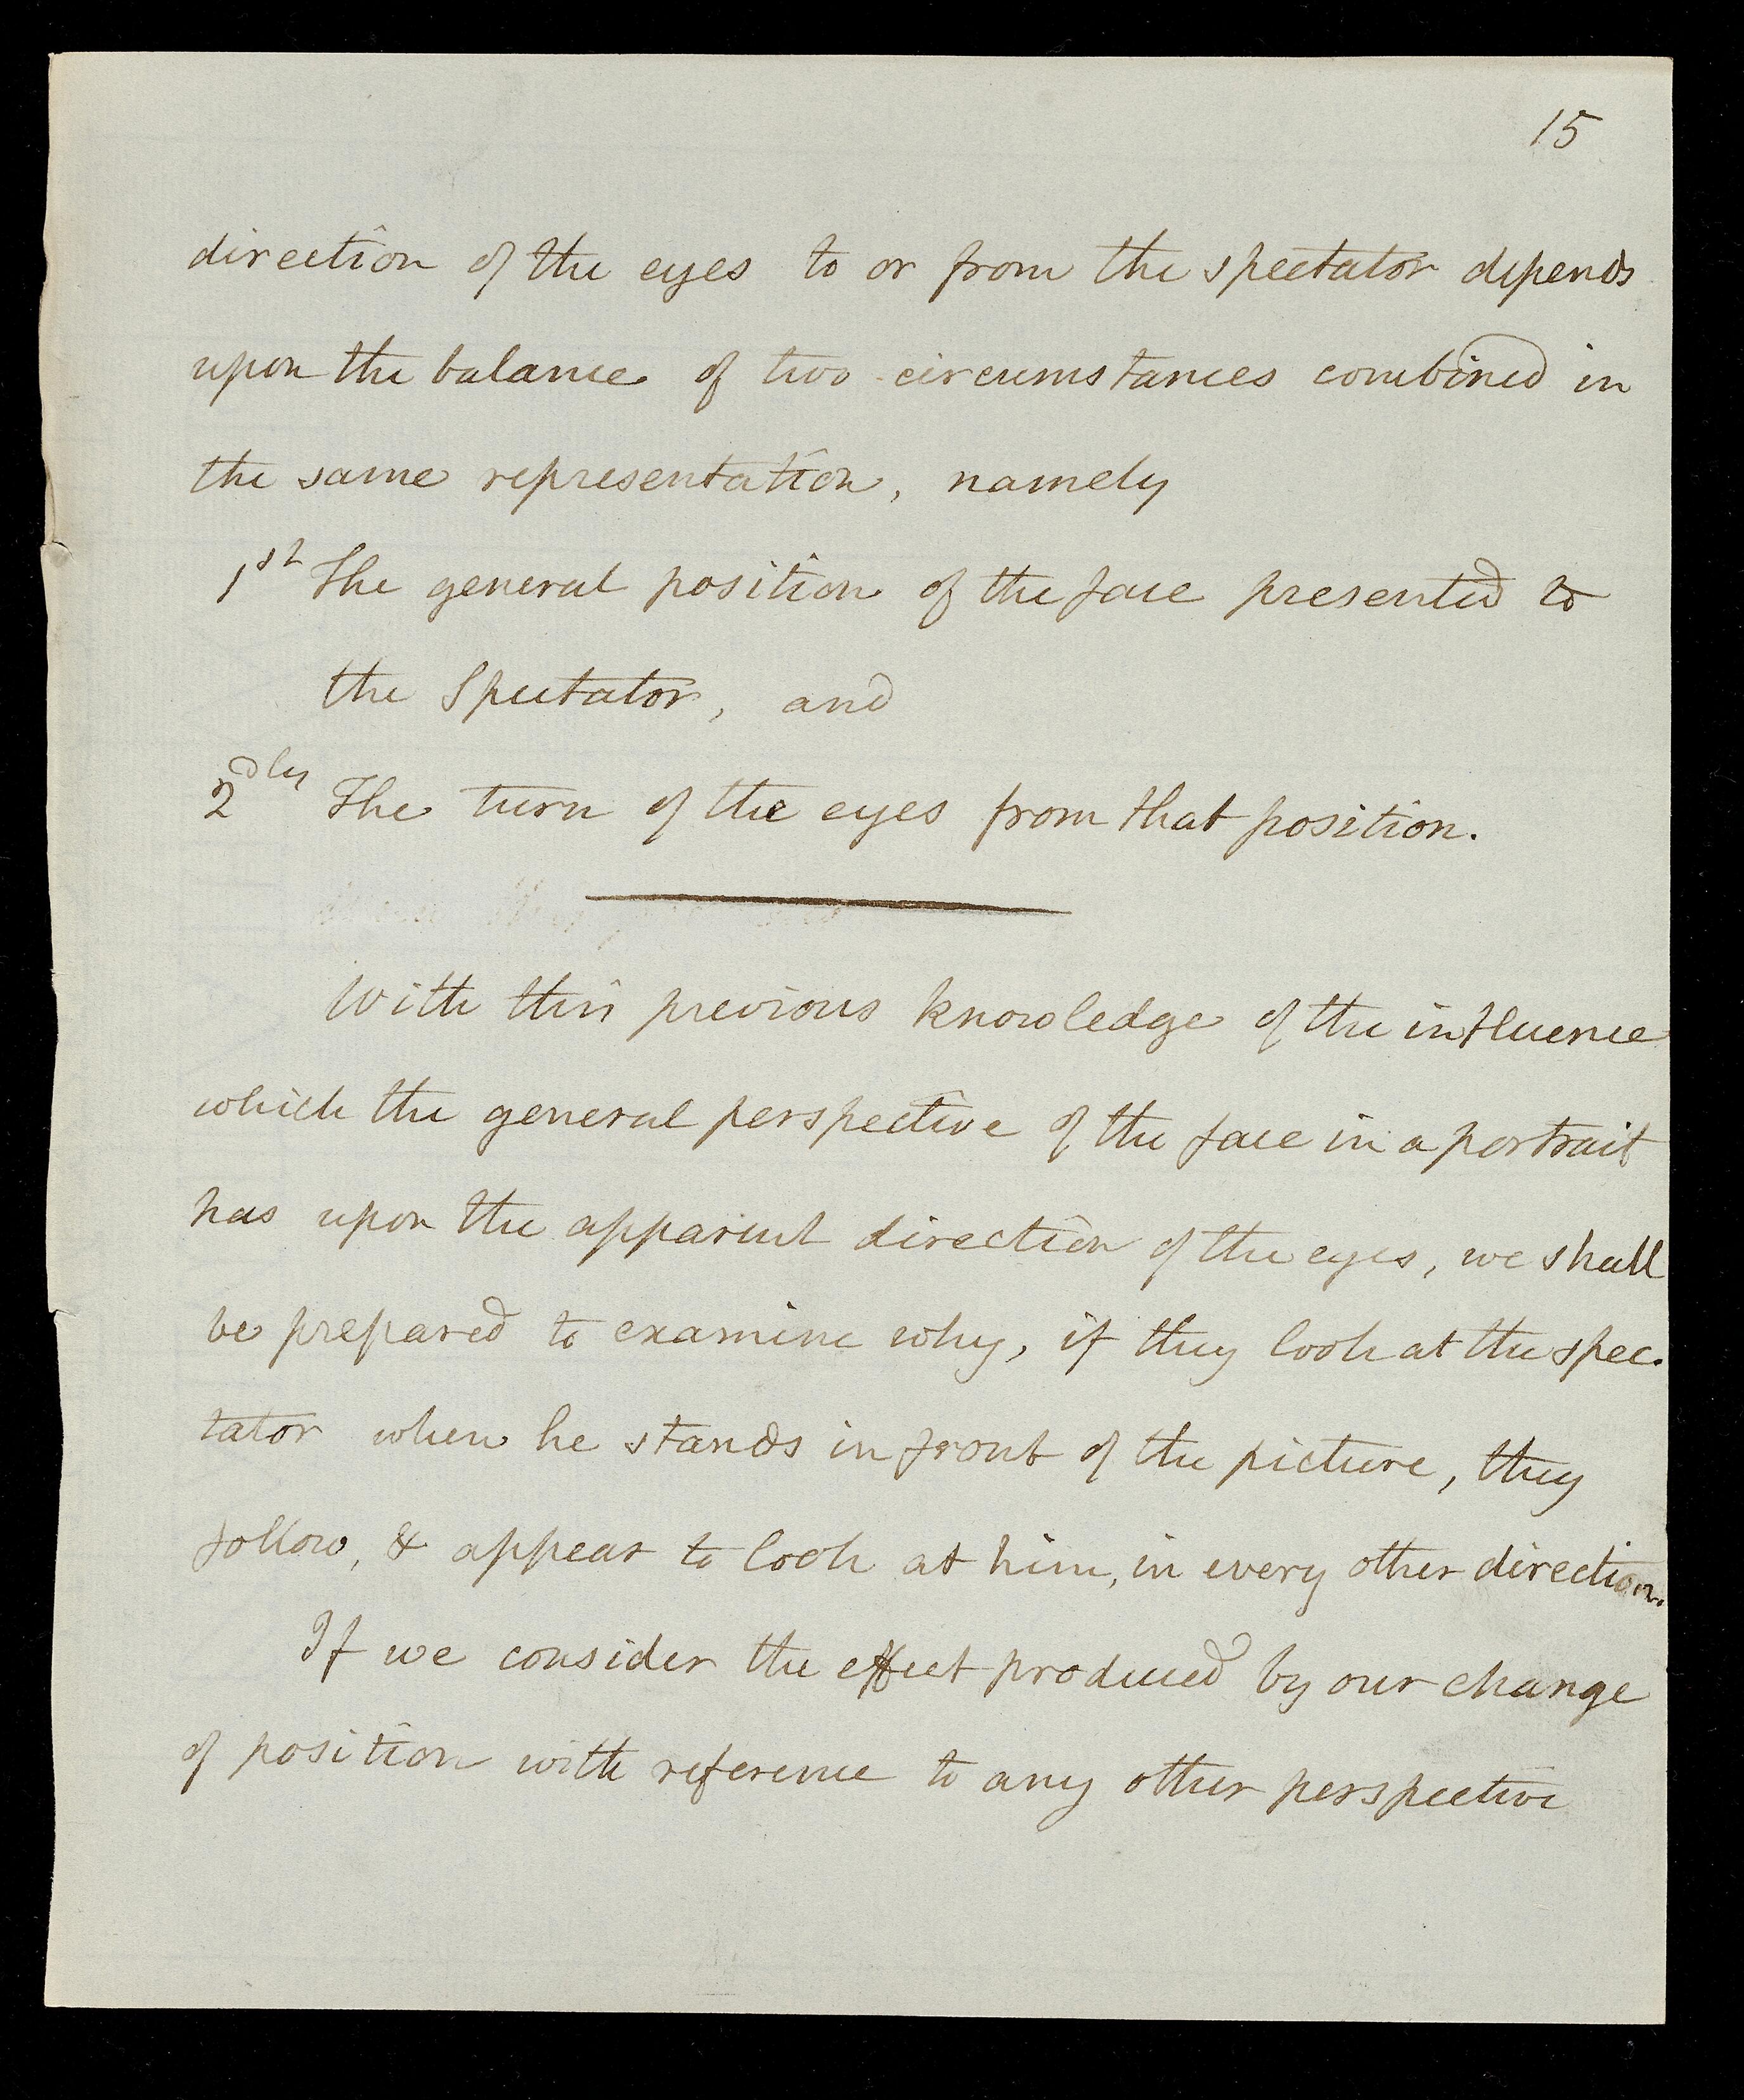 15
direction of the eyes to or from the spectator depends
upon the balance of two circumstances combined in
the same representation, namely
1st The general position of the face presented to
the Spectator, and
2dly The turn of the eyes from that position.
With this previous knowledge of the influence
which the general perspective of the face in a portrait
has upon the apparent direction of the eyes, we shall
be prepared to examine why, if they look at the spec-
tator when he stands in front of the picture, they
follow, & appear to look at him, in every other direction.
If we consider the effect produced by our change
of position with reference to any other perspective